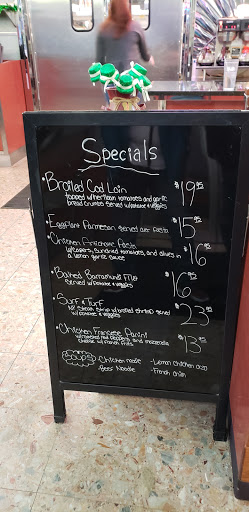 Specials
• Broiled Cod Loin $19.95
topped w/heirloom tomatoes and garlic
bread crumbs served w/potatoe + veggies
• Eggplant Parmesan served over Pasta $15.95
• Chicken Artichoke Pasta $16.95
w/capers, sundried tomatoes, and olives in
a lemon garlic sauce
• Baked Barramundi Filet $16.95
served w/potatoe + veggies
• Surf + Turf $23.95
NY steak strip w/broiled shrimp served
w/potatoe + veggies
• Chicken Francese Panini $13.95
w/roasted red peppers and mozzarella
cheese w/french fries
Soups
Chicken noodle - Lemon chicken orzo
Beef Noodle - French onion